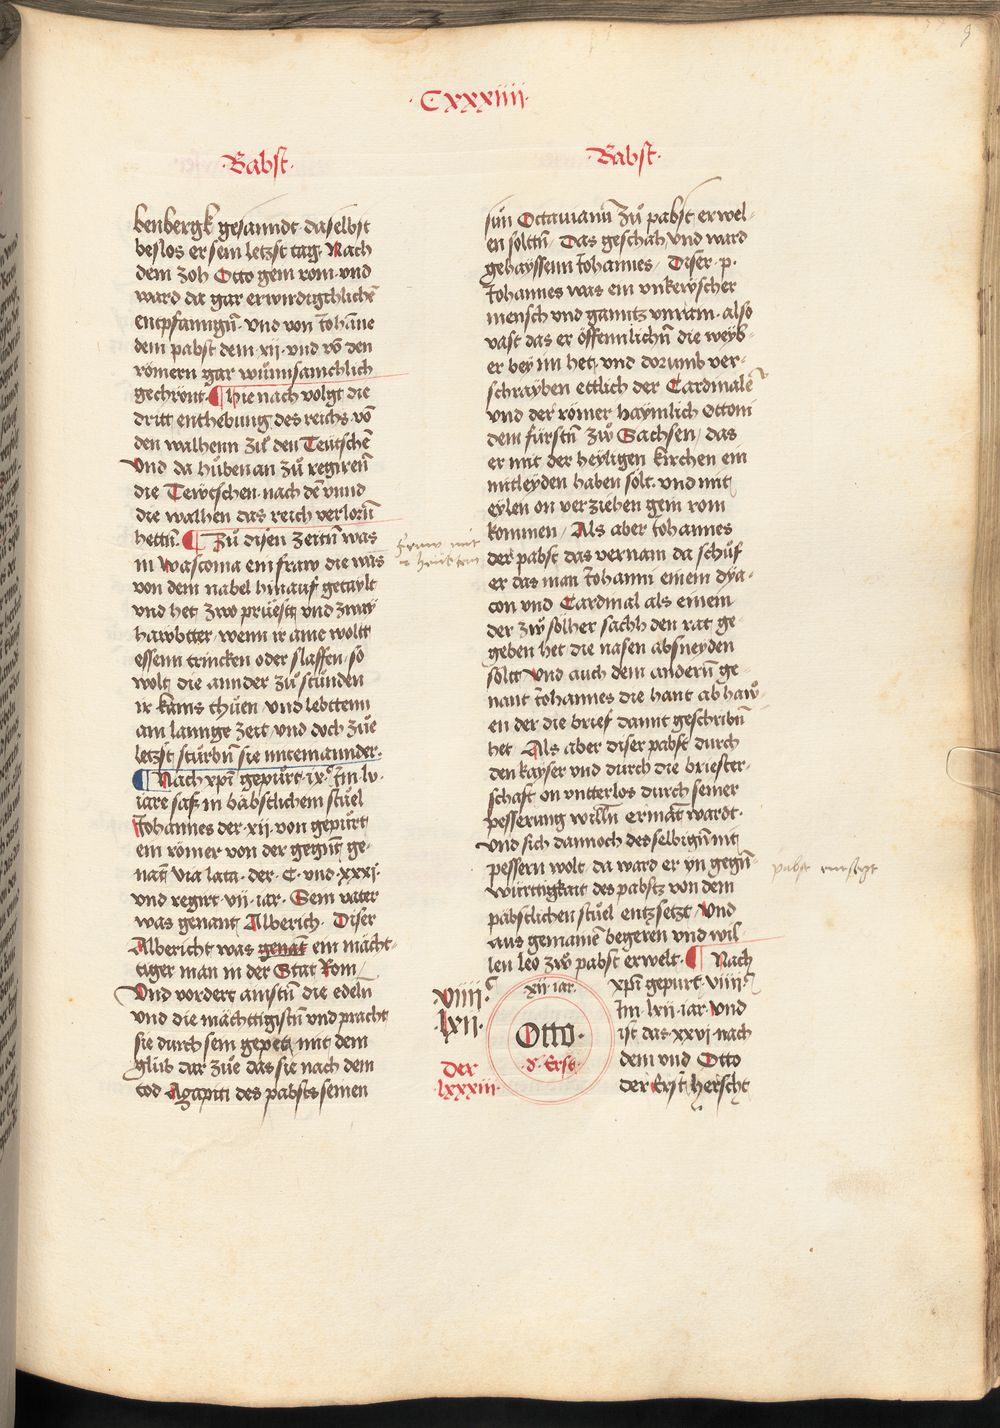 ·Cxxxiiii·
·Babst·
benbergk gesanndt daselbst
beslos er sein letzst tag· Nach
dem zoh Otto gein rom· vnd
ward da gar erwirdigchlichē
entpfanngn̄· vnd von Johāne
dem pabst dem xii· vnd vō den
römern gar wunnsamchlich
gechrönt· ¶ hie nach volgt die
dritt enthebung des reichs vō
den walhenn zů den Teutschē
Vnd da hůben an zů regiren̄
die Tewtschen· nach dē vnnd
die walhen das reich verlorn̄
hettn̄· ¶ Zů disen zeitn̄ was
in Wasconia ein fraw die was
von dem nabel hinauf getaylt
vnd het zwo prüestz vnd zway
hawbtter· wenn ir aine wollt
essenn trincken oder slaffen· so
wolt die annder zů stůnden
ir kains thüen· vnd lebttenn
ain lannge zeit· vnd doch zůe
letzst stürbn̄ sie miteinannder·
¶ Nach xp̄i gepůrt· ix·c Jm lv·
iare saß in bäbstlichem stůel
Johannes der· xii· von gepůrt
ein römer von der gegnt ge-
nan̄t Via lata· der· C· vnd· xxxi·
vnd regirt· vii· iar· Sein vater
was genant Alberich· Diser
Albericht was genāt ein mächt-
tiger man in der Stat Rom
Vnd vordert amstn̄ die edeln
vnd die mächttigistn̄ vnd pracht
sie durch sein gepett mit dem
glüb dar zůe das sie nach dem
tod Agapiti des pabsts seinen
fraw mit
·Babst·
sün Octauianū zů pabst erwel-
en solttn̄· Das geschah vnd ward
gehayssenn Johannes· Diser· p·
Johannes was ein vnkewscher
mensch vnd ganntz vnraın· also
vast das er öffennlichn̄ die weyb-
er bey im het· vnd dorumb ver-
schrayben ettlich der Cardinale
vnd der römer haymlich Ottoni
dem fürstn̄ zẘ Sachsen· das
er mit der heyligen kirchen ein
mitleyden haben solt· vnd mit
eylen on verziehen gein rom
kommen· Als aber Johannes
der pabst das vernam da schůf
er das man Johanni einem dya-
con vnd Cardinal als einem
der zẘ solher sachh den rat ge-
geben het die nasen absneyden
soltt Vnd auch dem andern̄ ge-
nant Johannes die hant ab haw-
en der die brief dannt geschribn̄
het· Als aber diser pabst durch
den kayser vnd durch die briester-
schaft on vntterlos durch seiner
pesserung willn̄ ermāt wardt·
Vnd sich dannoch desselbign̄ nit
pessern wolt· da ward er yn gegn̄-
württigkait des pabstz von dem
päbstlichen stůel entzsetzt· Vnd
aus gemainē begeren vnd wil-
len leo zẘ pabst erwelt· ¶ Nach
xp̄i gepurt· viiii·c
Jm· lxii· iar· Vnd
ist das· xxvi· nach
dem vnd Otto
der Erst herscht
viiii·c
·lxii·
der
·lxxxiii·
xii· iar·
Otto·
·d'· Erst·
pabst entsetzt